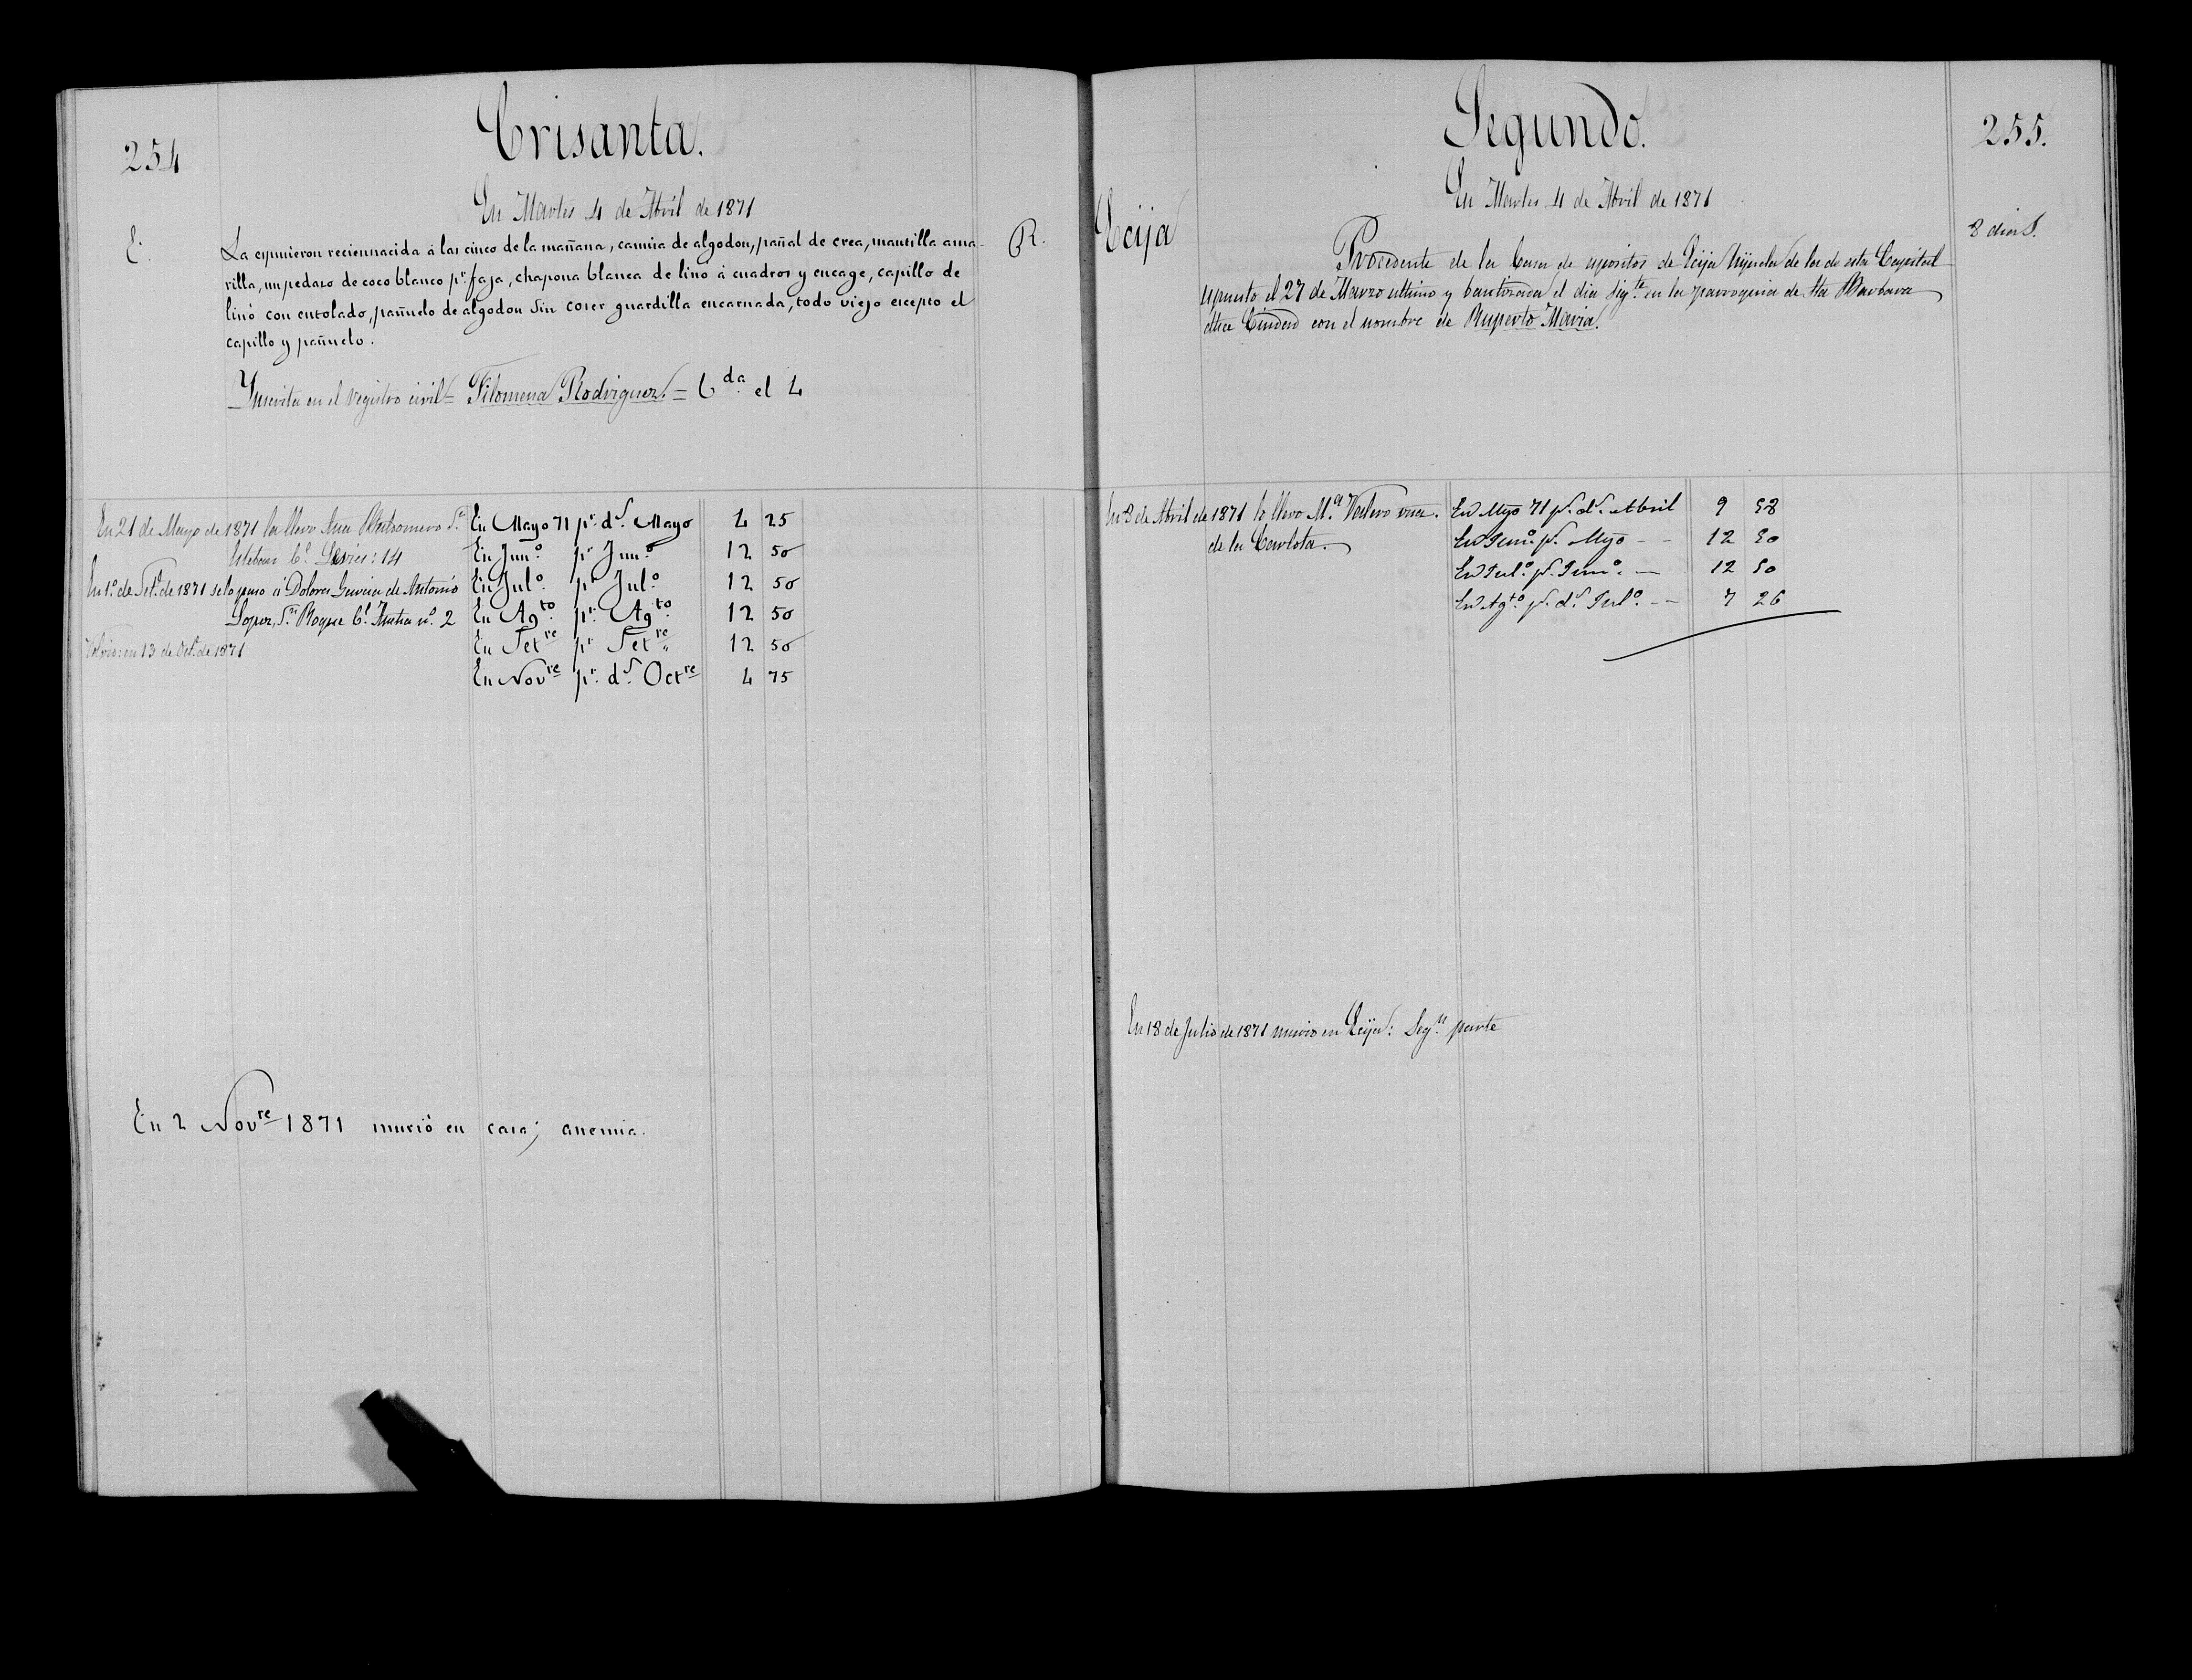 254
Crisanta.
En Martes 4 de Abril de 1871
E.
R.
La espusieron reciennacida á las cinco de la mañana, camisa de algodon, pañal de crea, mantilla ama-
rilla, un pedazo de coco blanco pr. faja, chapona blanca de lino á cuadros y encage, capillo de
linó con entolado, pañuelo de algodon sin coser guardilla encarnada, todo viejo escepto el
capillo y pañuelo.
Inscrita en el registro civil = Filomena Rodriguez. = Cda. el 4
En 21 de Mayo de 1871 la llevo Ana
Esteban Cl. : 14
En 1º. de Set. de 1871 se le paso á Dolores Garcia de Antonio
Lopez, Sn. Roque Cl. nº. 2
Volvió: en 13 de Oct. de 1871
En Mayo 71 pr. ds. Mayo 4 25
En Junº. pr. Junº. 12 50
En Julº. pr. Julº. 12 50
En Agto. pr. Agto. 12 50
En Setre pr. Setre. 12 50
En Novre pr. ds. Octre 4 75
En 2 Novre 1871 murió en casa; anemia.
Segundo.
255.
En Martes 4 de Abril de 1871
Ecija
8 dias.
Procedente de la Casa de espositos de Ecija hijuela de la de esta Capital
espuesto el 27 de Marzo ultimo y bautizado el dia sigte. en la parroquia de Sta Barbara
dha Ciudad con el nombre de Ruperto Maria.
En 8 de Abril de 1871 lo llevo Mª. Valero vna.
de la Carlota.
En Myo 71 pr. ds. Abril 9 58
En Junº. pr. Myo - - 12 50
En Julº. pr. Junº. — 12 50
En Agtº. pr. ds. Julº. - - 7 26
En 18 de Julio de 1871 murio en Ecija: Segn. parte